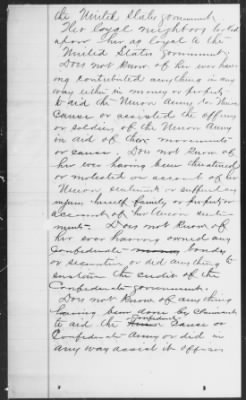 the United States government.
Her loyal neighbors looked
upon her as loyal to the
United States government.
Does not know of her ever hav-
ing contributed anything in any
way either in money or property
to aid the Union Army or Union
Cause or assisted the officers
or soldiers of the Union Army
in aid of their movements
or cause. Does not know of
her ever having been threatened
or molested on account of her
Union sentiments or suffered any
injury herself family or property on
account of her Union senti-
ments. Does not know of
her ever having owned any
Confederate bonds
or securities or did anything to
sustain the credit of the
Confederate government.
Does not know of anything
having been done by claimant
to aid the Confederate Cause or
Confederate Army or did in
any way assist it officers